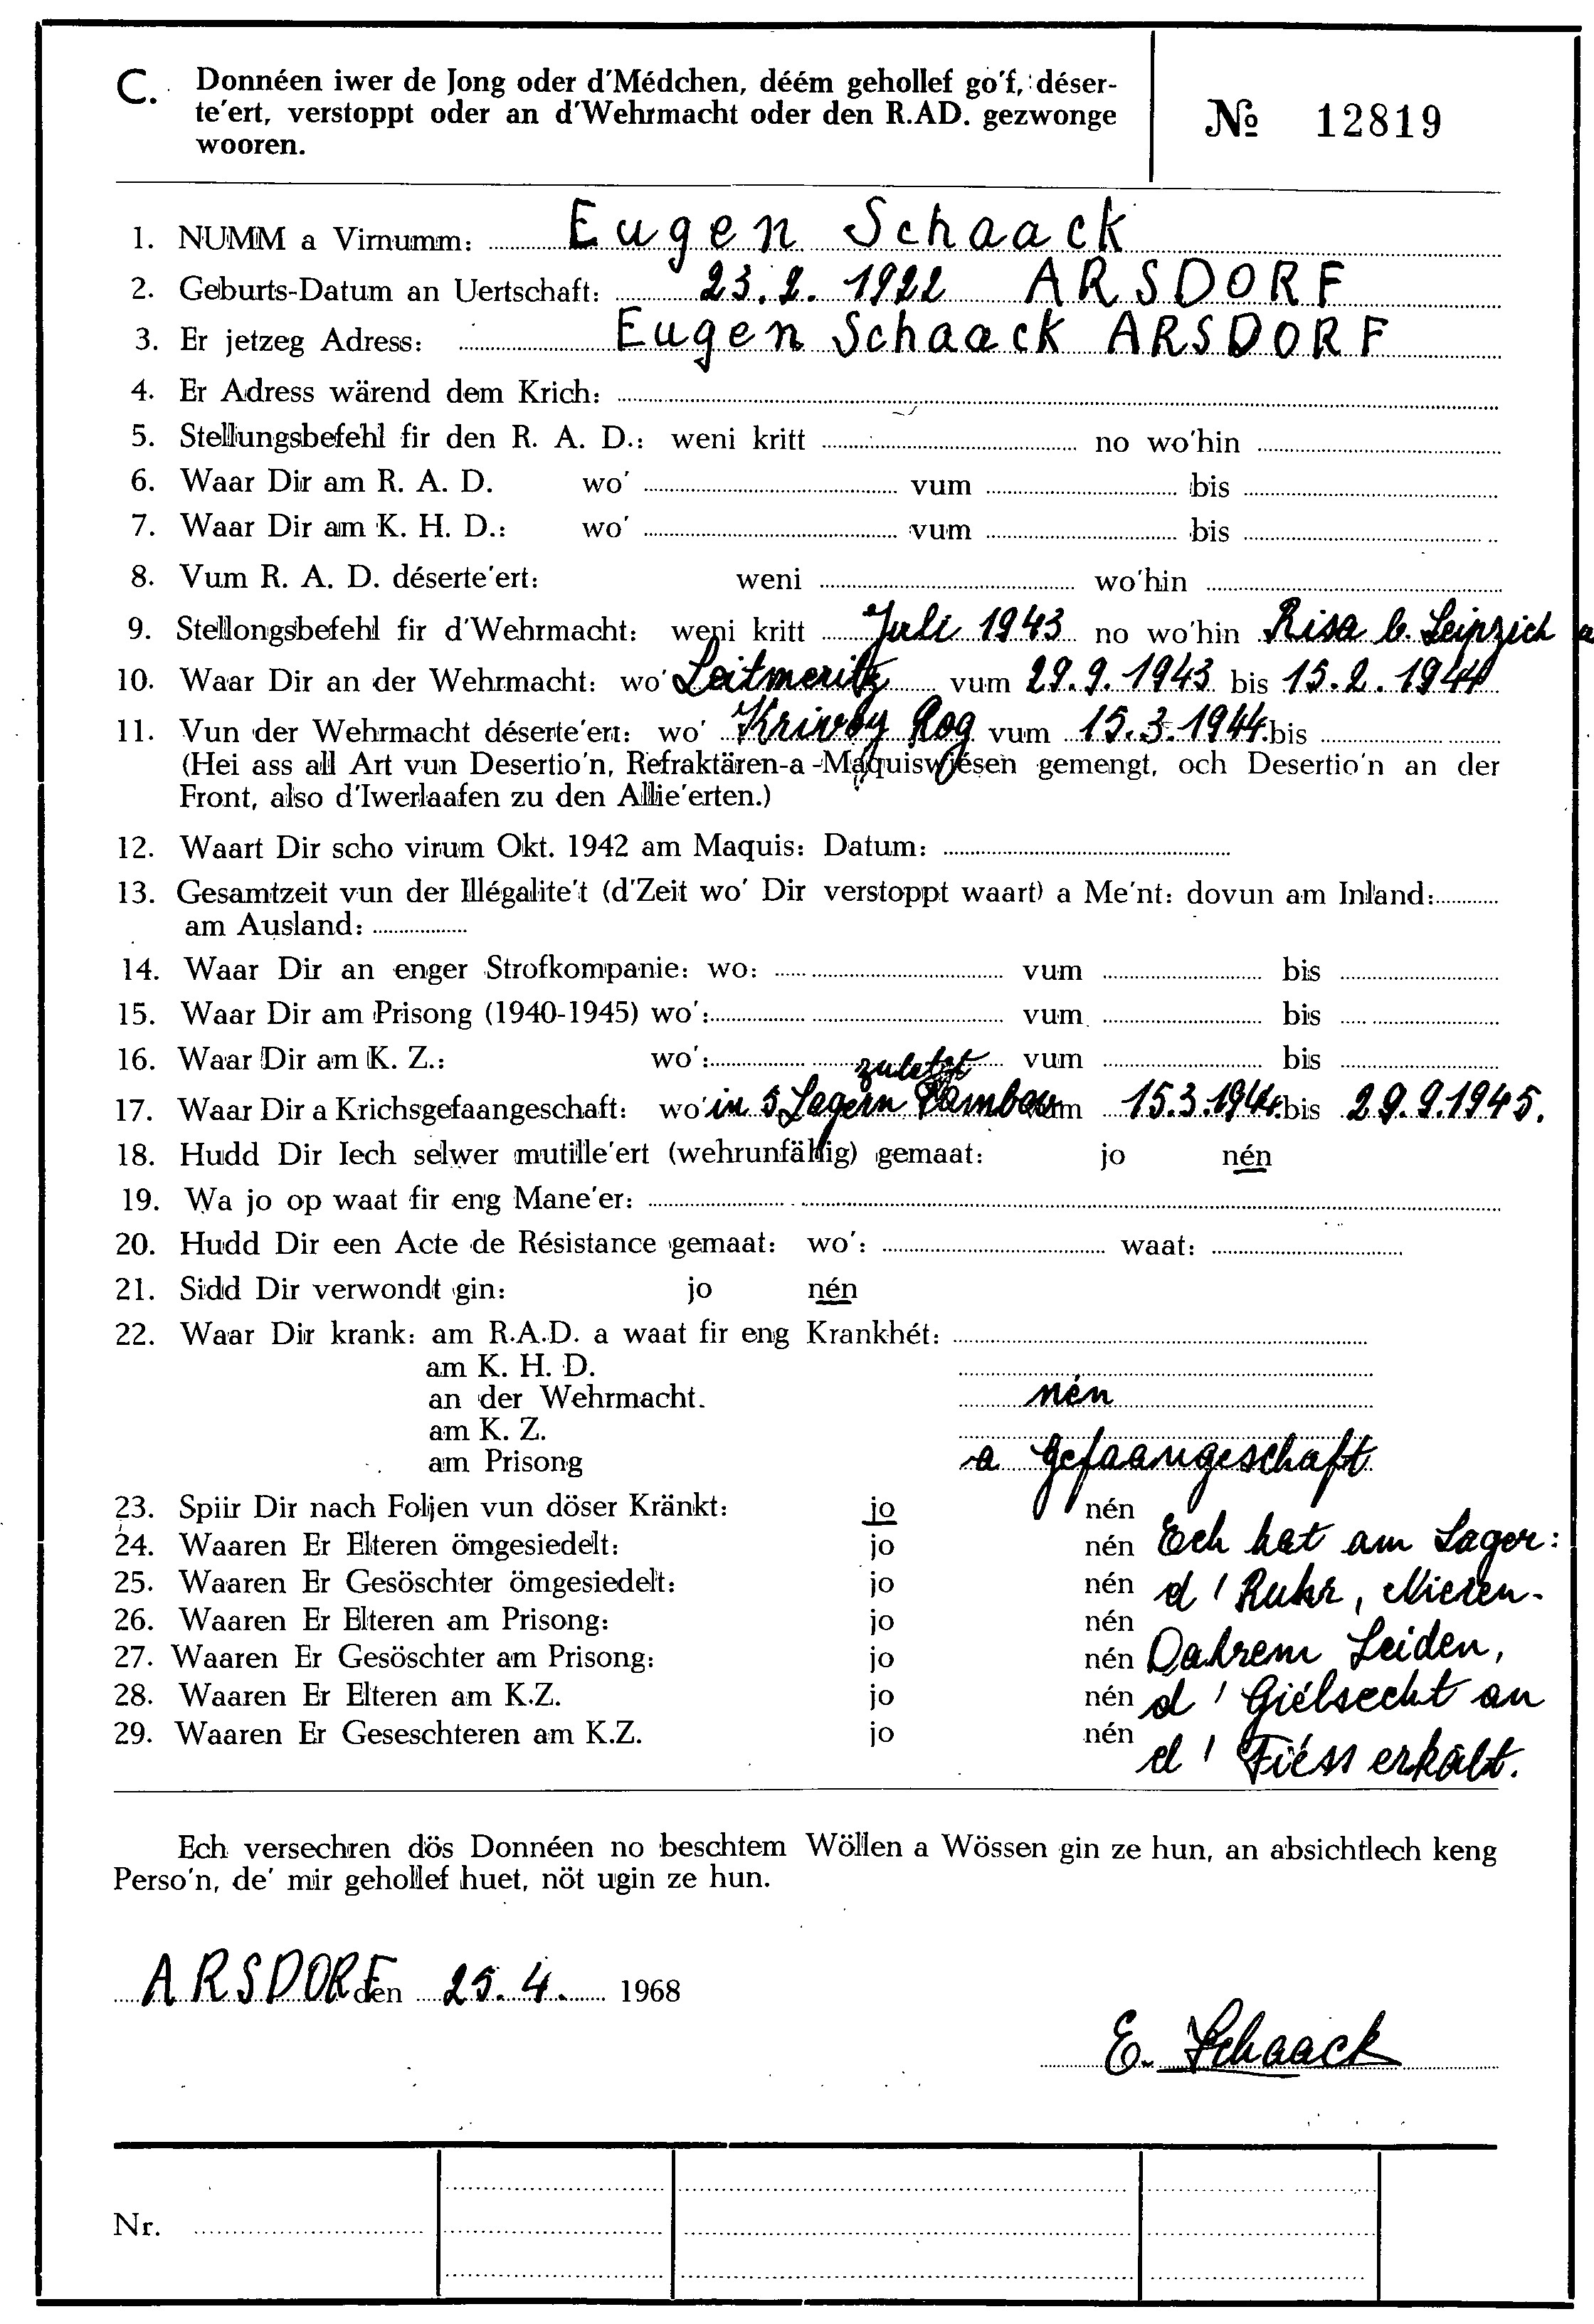 C. Donnéen iwer de Jong oder d'Médchen, déém gehollef go'f, déser-
te'ert, verstoppt oder an d'Wehrmacht oder den R.AD. gezwonge
wooren.
№ 12819
1. NUMM a Virnumm: Eugen Schaack
2. Geburts-Datum an Uertschaft: 23.2.1922 ARSDORF
3. Er jetzeg Adress: Eugen Schaack ARSDORF
4. Er Adress wärend dem Krich:
5. Stellungsbefehl fir den R. A. D.: weni kritt no wo'hin
6. Waar Dir am R. A. D. wo' vum bis
7. Waar Dir am K. H. D.: wo' vum bis
8. Vum R. A. D. déserte'ert: weni wo'hin
9. Stellongsbefehl fir d'Wehrmacht: weni kritt Juli 1943 no wo'hin Risa b. Leipzich
10. Waar Dir an der Wehrmacht: wo' Leitmeritz vum 29.9.1943 bis 15.2.1944
11. Vun der Wehrmacht déserte'ert: wo' Kriwoy Rog vum 15.3.1944 bis
(Hei ass all Art vun Desertio'n, Refraktären-a-Maquiswiésen gemengt, och Desertio'n an der
Front, also d'Iwerlaafen zu den Allie'erten.)
12. Waart Dir scho virum Okt. 1942 am Maquis: Datum:
13. Gesamtzeit vun der Illégalite't (d'Zeit wo' Dir verstoppt waart) a Me'nt: dovun am Inland:
am Ausland:
14. Waar Dir an enger Strofkompanie: wo: vum bis
15. Waar Dir am Prisong (1940-1945) wo': vum bis
16. Waar Dir am K. Z.: wo': vum bis
zuletzt
17. Waar Dir a Krichsgefaangeschaft: wo' in 5 Lagern Tambow vum 15.3.1944 bis 29.9.1945.
18. Hudd Dir Iech selwer mutille'ert (wehrunfähig) gemaat: jo nén
19. Wa jo op waat fir eng Mane'er:
20. Hudd Dir een Acte de Résistance gemaat: wo': waat:
21. Sidd Dir verwondt gin: jo nén
22. Waar Dir krank: am R.A.D. a waat fir eng Krankhét:
am K. H. D.
an der Wehrmacht. nén
am K. Z.
am Prisong a Gefaangeschaft
23. Spiir Dir nach Foljen vun döser Kränkt: jo nén
24. Waaren Er Elteren ömgesiedelt: jo nén Ech hat am Lager:
25. Waaren Er Gesöschter ömgesiedelt: jo nén d'Ruhr, Nieren-
26. Waaren Er Elteren am Prisong: jo nén
27. Waaren Er Gesöschter am Prisong: jo nén Dahrem Leiden,
28. Waaren Er Elteren am K.Z. jo nén d'Giélsecht an
29. Waaren Er Geseschteren am K.Z. jo nén
d'Fiéss erkalt.
Ech versechren dös Donnéen no beschtem Wöllen a Wössen gin ze hun, an absichtlech keng
Perso'n, de' mir gehollef huet, nöt ugin ze hun.
ARSDORF den 25.4. 1968
E. Schaack
Nr.